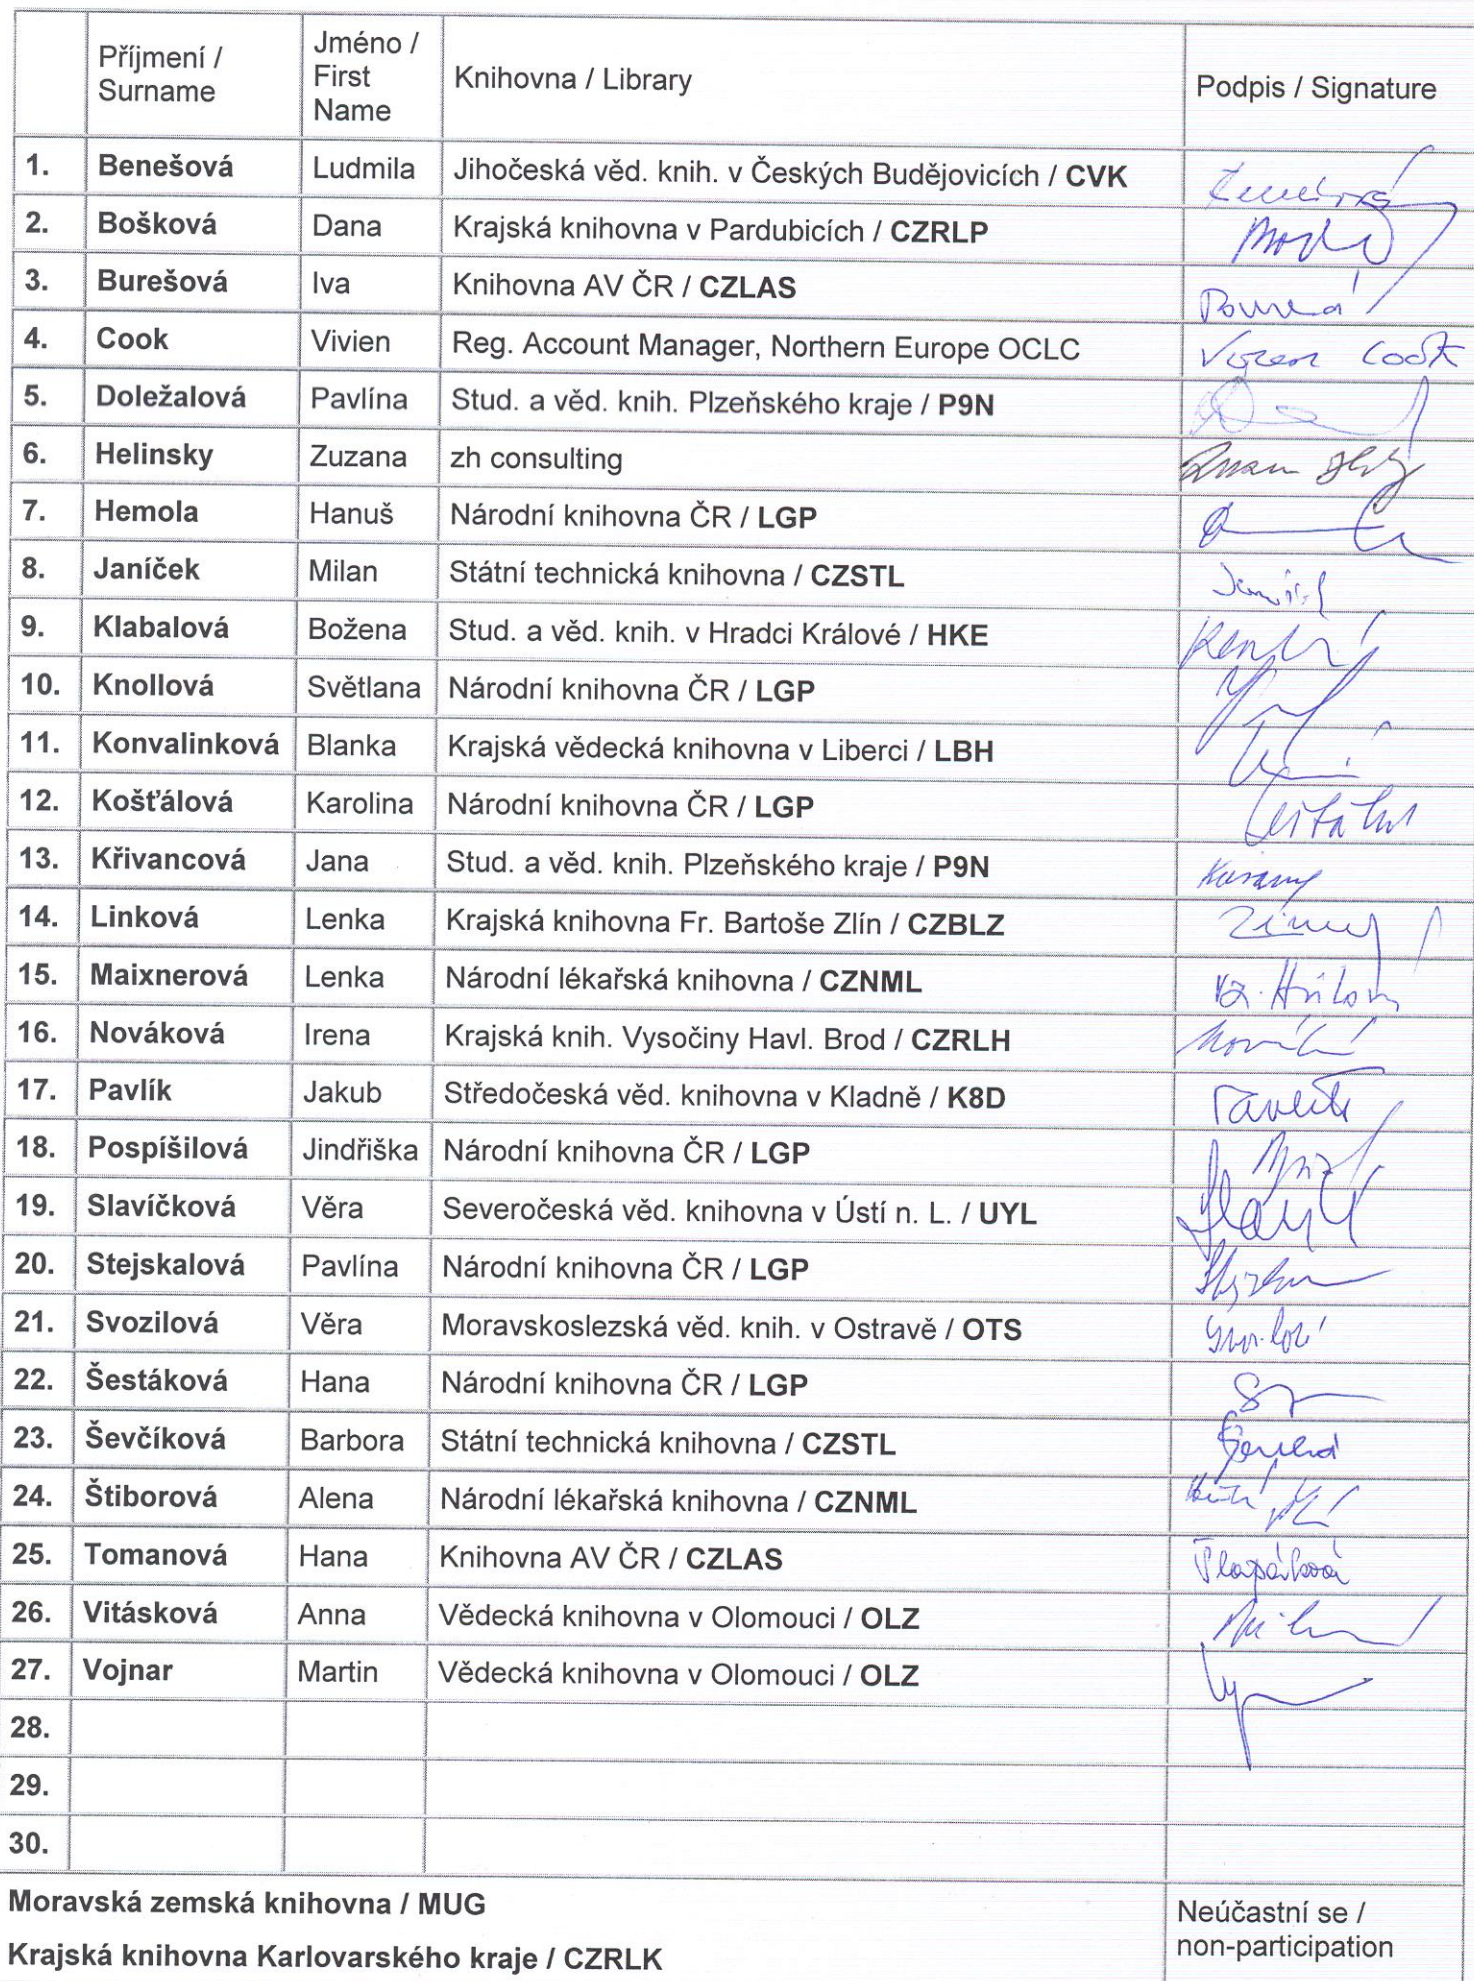 Příjmení / Surname Jméno / First Name Knihovna / Library Podpis / Signature
1. Benešová Ludmila Jihočeská věd. knih. v Českých Budějovicích / CVK
2. Bošková Dana Krajská knihovna v Pardubicích / CZRLP
3. Burešová Iva Knihovna AV ČR / CZLAS
4. Cook Vivien Reg. Account Manager, Northern Europe OCLC Vivien Cook
5. Doležalová Pavlína Stud. a věd. knih. Plzeňského kraje / P9N
6. Helinsky Zuzana zh consulting
7. Hemola Hanuš Národní knihovna ČR / LGP
8. Janíček Milan Státní technická knihovna / CZSTL
9. Klabalová Božena Stud. a věd. knih. v Hradci Králové / HKE
10. Knollová Světlana Národní knihovna ČR / LGP
11. Konvalinková Blanka Krajská vědecká knihovna v Liberci / LBH
12. Košťálová Karolina Národní knihovna ČR / LGP
13. Křivancová Jana Stud. a věd. knih. Plzeňského kraje / P9N
14. Linková Lenka Krajská knihovna Fr. Bartoše Zlín / CZBLZ
15. Maixnerová Lenka Národní lékařská knihovna / CZNML
16. Nováková Irena Krajská knih. Vysočiny Havl. Brod / CZRLH
17. Pavlík Jakub Středočeská věd. knihovna v Kladně / K8D
18. Pospíšilová Jindřiška Národní knihovna ČR / LGP
19. Slavíčková Věra Severočeská věd. knihovna v Ústí n. L. / UYL
20. Stejskalová Pavlína Národní knihovna ČR / LGP
21. Svozilová Věra Moravskoslezská věd. knih. v Ostravě / OTS
22. Šestáková Hana Národní knihovna ČR / LGP
23. Ševčíková Barbora Státní technická knihovna / CZSTL
24. Štiborová Alena Národní lékařská knihovna / CZNML
25. Tomanová Hana Knihovna AV ČR / CZLAS
26. Vitásková Anna Vědecká knihovna v Olomouci / OLZ
27. Vojnar Martin Vědecká knihovna v Olomouci / OLZ
28.
29.
30.
Moravská zemská knihovna / MUG
Krajská knihovna Karlovarského kraje / CZRLK
Neúčastní se /
non-participation